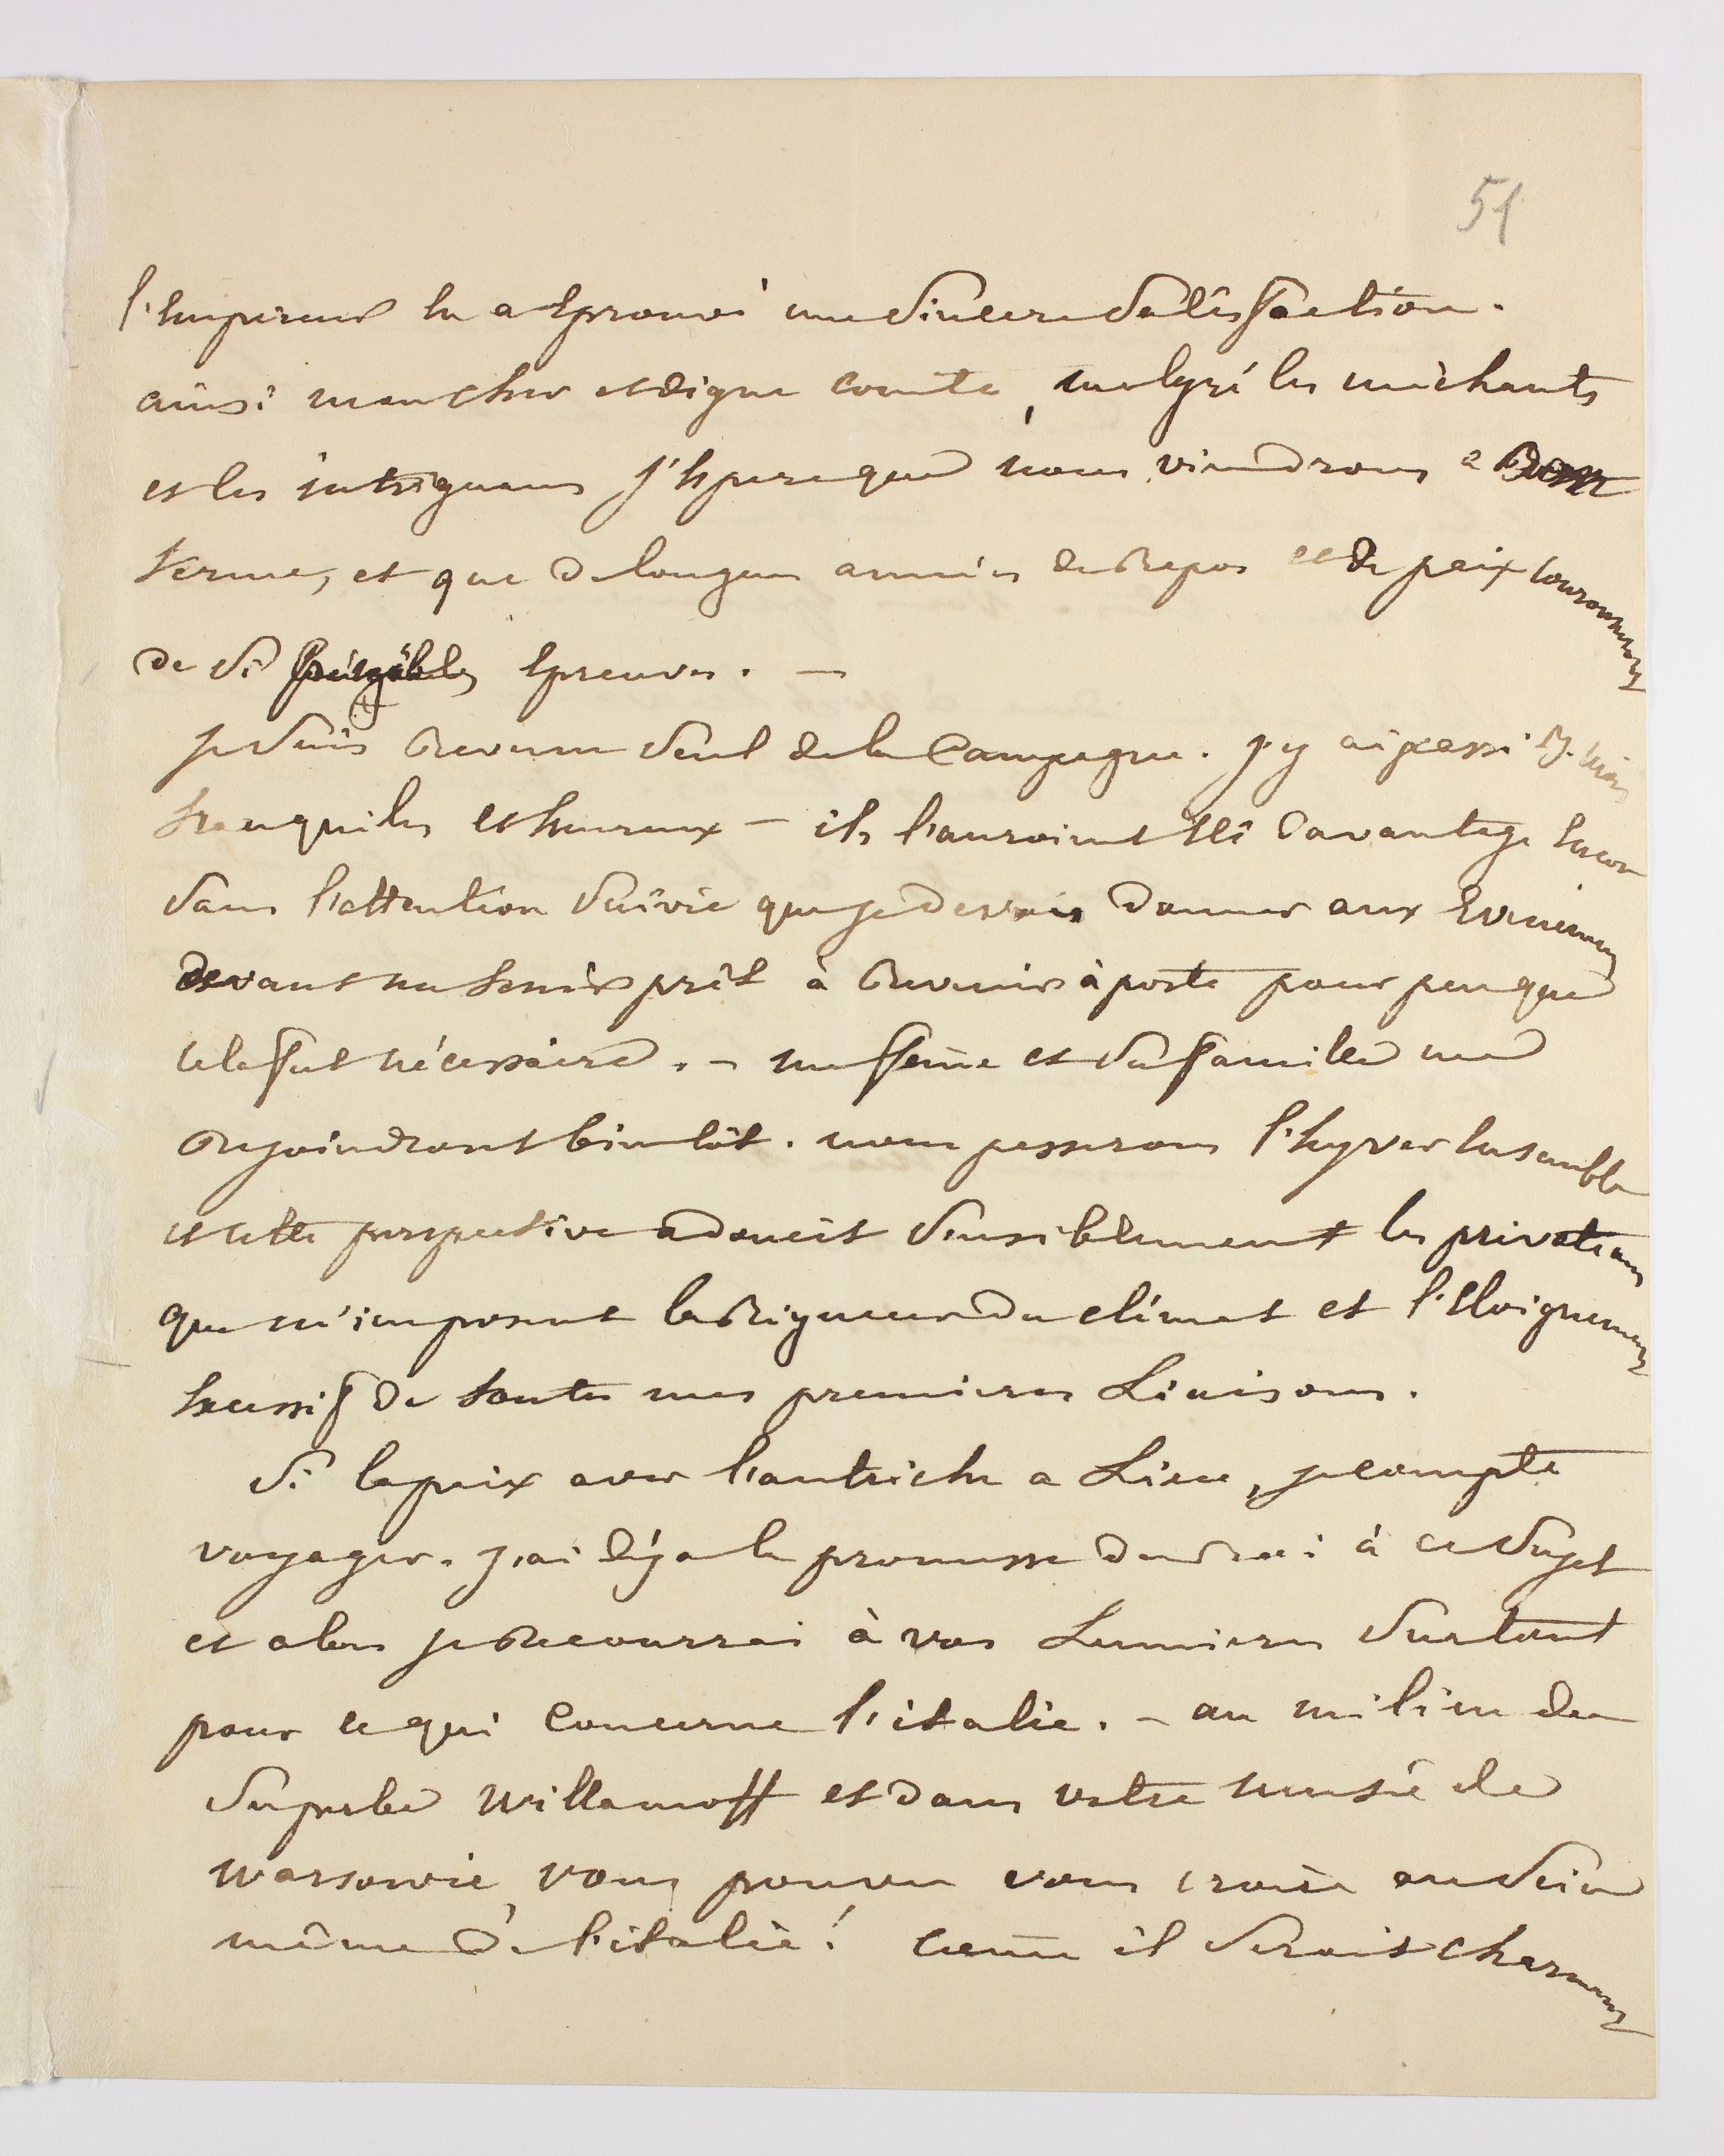 51
l'Empereur en a éprouvé une Sincere Satisfaction.
ainsi mon cher et digne comte, malgré les méchants
et les intriguans j'Espere que nous viendrons a Bon
terme, et que de longues années de Repos et de paix couronneront
de Si pénibles Epreuves. —
je Suis Revenu Seul de la Campagne. j'y ai passé
tranquiles et heureux — ils l'auroient Eté davantage Encor
Sans l'attention Suivie que je devois donner aux Evenemens
devant me tenir prêt à Revenir à poste pour peu que
cela fut nécessaire. — ma feme et Sa famille me
Rejoindront bientôt. nous passerons l'hyver Ensemble
et cette perspective adoucit Sensiblement les privations
que m'imposent la Rigueur du climat et l'Eloignement
Excessif de toutes mes premieres Liaisons.
Si la paix avec l'autriche a Lieu, je compte
voyager. j'ai déja la promesse à ce Sujet
et alors je Recourrai à vos Lumieres Surtout
pour ce qui Concerne l'italie. — au milieu du
Superbe Willanoff et dans votre musée de
Warsowie, vous pouvez vous croire au Sein
même de l'italie! come il Seroit charmant